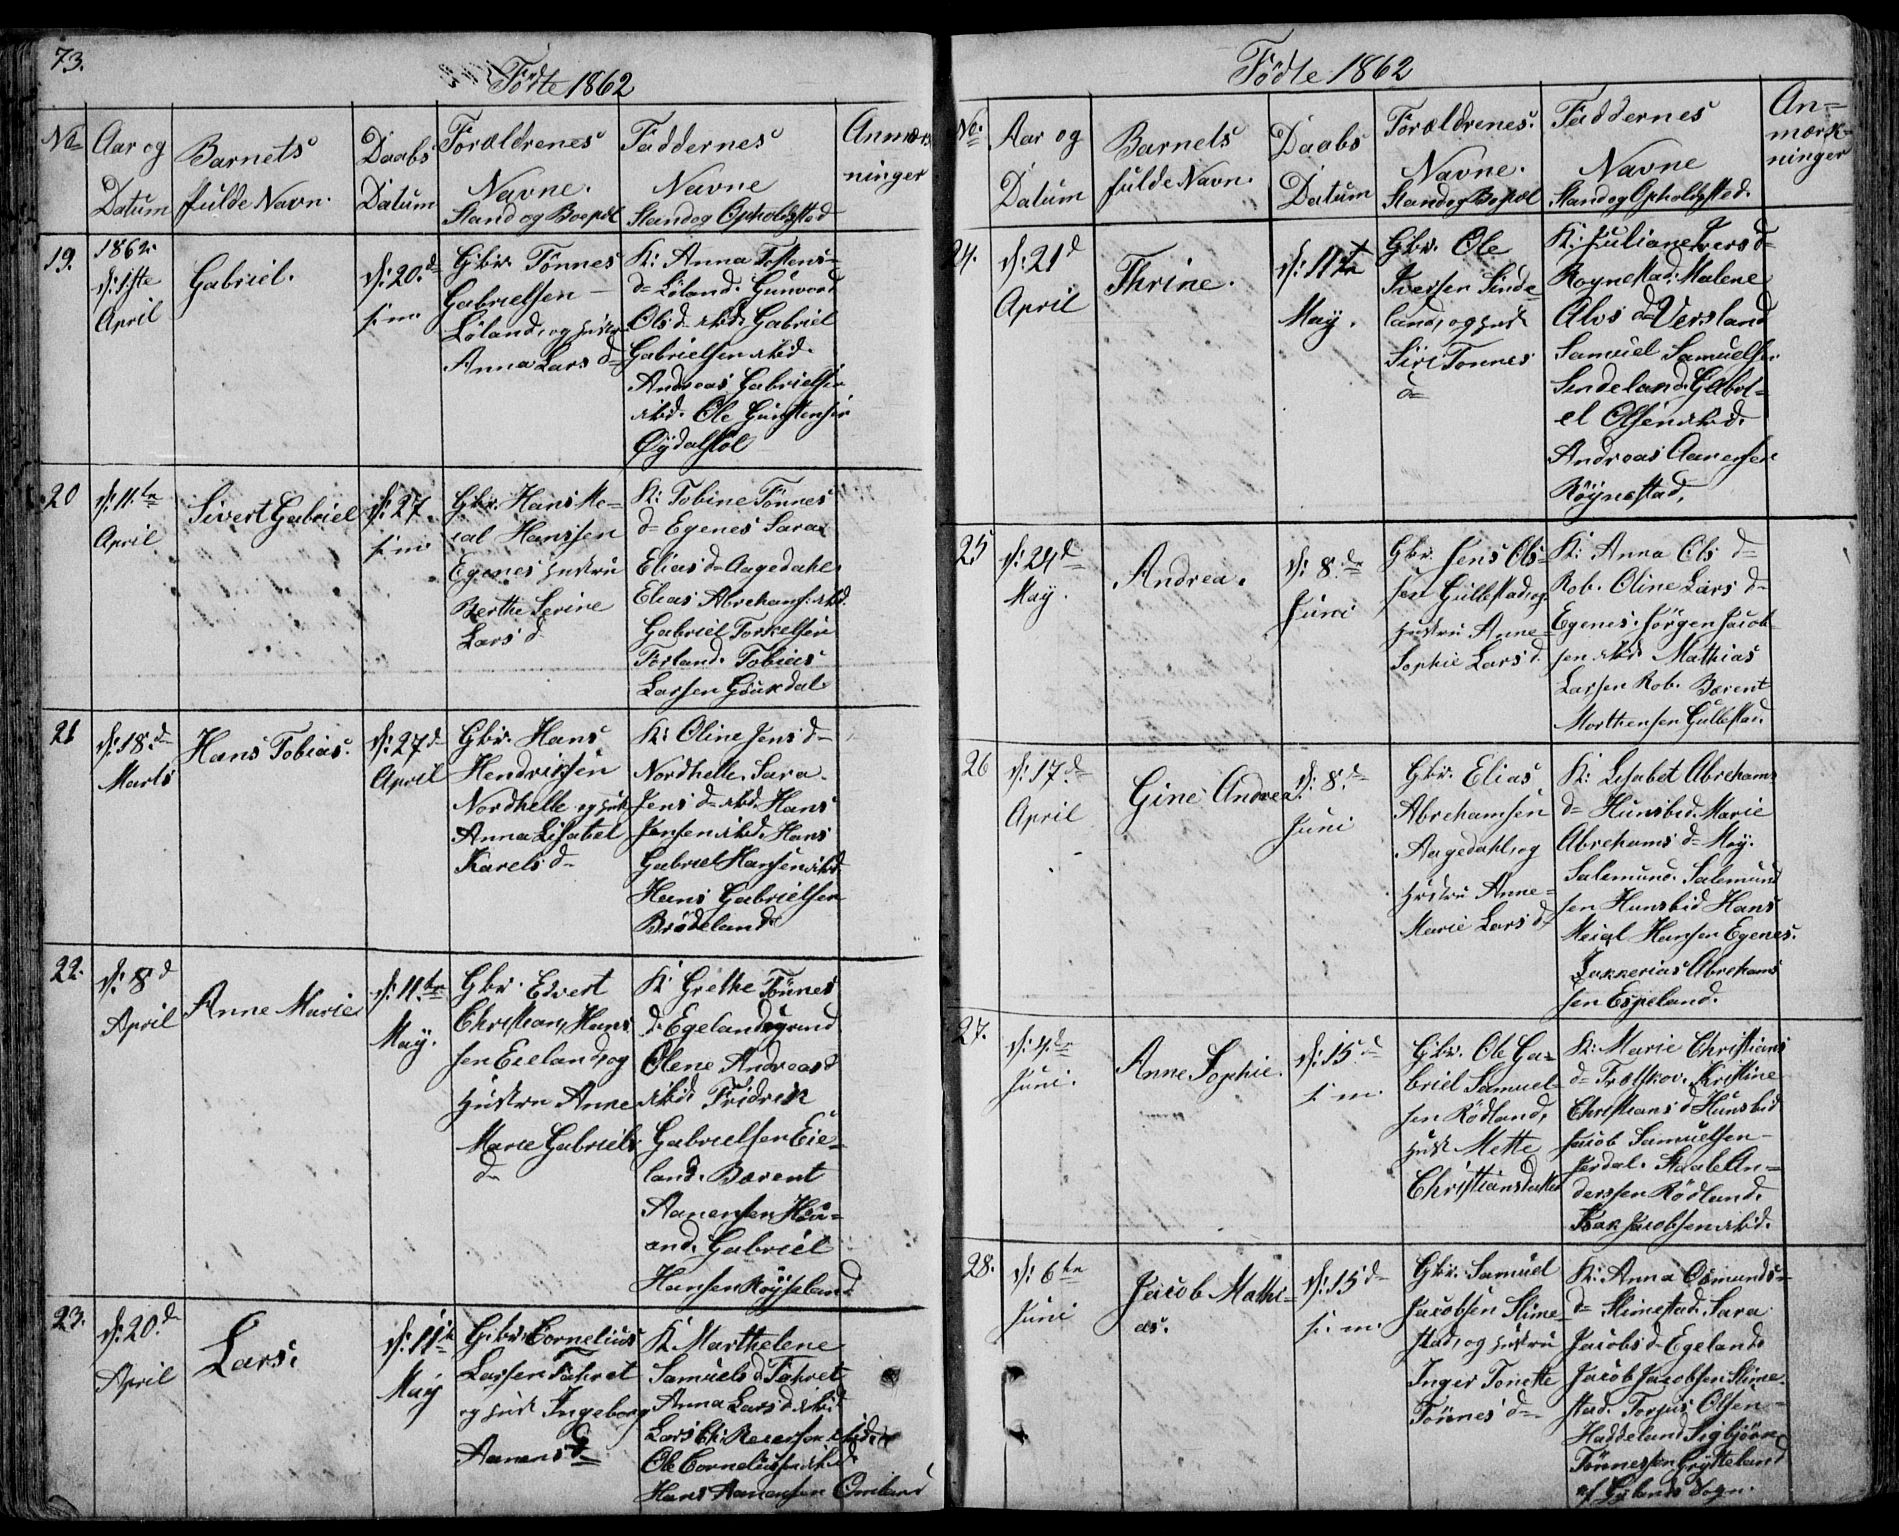 73.
Fødte 1862
No
Aar og
Datum
Barnets
fulde Navn.
Daabs
Datum
Forældrenes
Navne.
Stand og Bopæl
Faddernes
Navne
Stand og Opholdssted
Anmærk
ninger
19.
1862.
d: 1ste
April
Gabriel.
d: 20.d
s. m.
Gbr. Tönnes
Gabrielsen
Löland, og Hustr
Anna Lars d
K: Anna
d= Löland. Gunvord
Ols d= ibid. Gabriel
Gabrielsen ibid.
Andreas Gabrielsen
ibid. Ole Gunstensen
Øydalstöl
20
d: 11.te
April
Sivert Gabriel
d: 27.
s. m.
Gbr. Hans Me=
ial Hanssen
Egenes Hustru
Berthe Serine
Lars d
K: Tobine Tönnes
d= Egenes Sara
Elias d= Aagedahl.
Elias Abrahams: ibid.
Gabriel Torkelsen
Förland. Tobias
Larsen
21
d: 18.d=
Marts
Hans Tobias.
d: 27 d
April
Gbr. Hans
Hendriksen
Nordhelle og Hust
Anna Lisabet
Karels d=
K: Oline Jens d=
Nordhelle. Sara
Jens d= ibid. Hans
Jensen ibid. Hans
Gabriel Hansen ibid
Hans Gabrielsen
Brödeland
22.
d: 8 d
April
Anne Marie
d: 11.te
May.
Gbr. Edvert
Christian Hans
sen Eieland, og
Hustru Anne
Marie Gabriels
d=
K: Grethe Tönnes
d. Egelandsgrund
Olene Andreas d
ibid. Fridrik
Gabrielsen Eie=
land. Bærent
Aanensen
and. Gabriel
Hansen Röyseland
23.
d: 20.d
April
Lars.
d: 11te
May
Gbr. Cornelius
Larsen Tahret
og Hust Ingeborg
Aanens d=
K: Marthelene
Samuels d Tahret
Anna Lars d ibid
Lars ibid.
Ole Corneliussen ibid
Hans Aanensen Omland
Fødte 1862
No:
Aar og
Datum
Barnets
fulde Navn.
Daabs
Datum
Forældrenes.
Navne.
Stand og Bopæl
Faddernes
Navne
Stand og Opholdssted.
An=
mærk=
ninger
24.
d: 21 d
April
Thrine.
d: 11te
May.
Gbr. Ole
Iversen Sinde=
land, og Hust
Siri Tönnes
d=
K: Juliane Ivers d=
Röynestad. Malene
Alvs d= Versland
Samuel Samuelsen
Sindeland. Gabri=
el Olsen ibid.
Andreas Aanensen
Röynestad.
25
d: 24 d=
May.
Andrea.
d: 8.de
Juni
Gbr. Jens Ols=
sen Gullestad, og
Hustru Anne=
Sophie Lars d.
K: Anna Ols d=
Rob. Oline Lars d=
Egenes. Jörgen Jacob=
sen ibid. Mathias
Larsen Rob. Bærent
Morthensen Gullestad.
26
d: 17.de
April
Gine Andrea.
d: 8.d
Juni
Gbr. Elias
Abrehamsen
Aagedahl, og
Hustru Anne=
Marie Lars d=
K: Lisabet Abrehams
d= Hunsbid. Marie
Abrehams d= Moy.
Salemund. Salemund
sen Hunsbid Hans
Meial Hansen Egenes.
Zakkerias Abrehams
sen Espeland.
27.
d: 4.de
Juni.
Anne Sophie.
d: 15.d
s. m.
Gbr. Ole Ga=
briel Samuel=
sen Rödland,
Hust Mette
Christiansdatter
K: Marie Christians
d= Trælskov. Kristine
Christians d Hunsbid
Jacob Samuelsen
Jerdal. Staale An=
derssen Rödland.
Isak Jacobsen ibid.
28.
d: 6te
Juni
Jacob Mathi=
as.
d: 15 d=
s. m.
Gbr. Samuel
Jacobsen Slime=
stad, og Hustru
Inger Tonette
Tönnes d=
K: Anna Osmunds=
d= Slimestad. Sara
Jacobs d= Egeland
Jacob Jacobsen Slime=
stad. Torjus Olsen
Haddeland Sigbjörn
Tönnessen Grytteland
af Gylands Sogn.